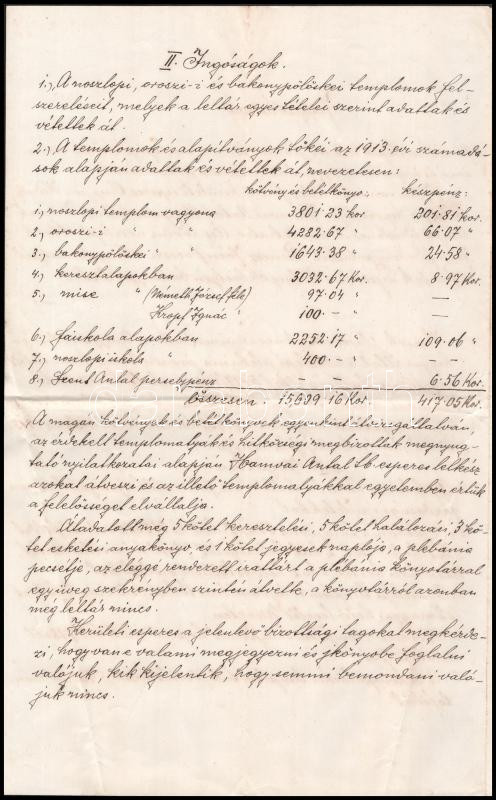 II. Ingóságok.
1., A noszlopi, oroszi-i és bakonypölöskei templomok fel-
szereléseit, melyek a leltár egyes tételei szerint adattak és
vétettek át.
2., A templomok és alapítványok tőkéi az 1913. évi számadá-
sok alapján adattak és vétettek át, nevezetesen:
kötvény és betétkönyv: készpénz:
1., noszlopi templom vagyona 3801·23 kor. 201·81 Kor.
2., oroszi-i " " 4282·67 " 66·07 "
3., bakonypölöskei " " 1643·38 " 24·58 "
4., keresztalapokban 3032·67 Kor. 8·97 Kor.
5., mise " (Németh József féle) 97·04 " —
Kropf Ignác " 100·— " —
6., faiskola alapokban 2252·17 " 109·06 "
7., noszlopi iskola " 400·— " —
8., Szent Antal perselypénz — — 6·56 Kor.
Összesen: 15699·16 Kor. 417·05 Kor.
A magán kötvények és betétkönyvek egyenként átvizsgáltatván,
az érdekelt templomatyák és hitközségi megbizottak megnyug-
tató nyilatkozatai alapján Hamvai Antal tb. esperes lelkész
azokat átveszi és az illető templomatyákkal egyetemben értük
a felelősséget elvállalja.
Átadatott még 5 kötet keresztelési, 5 kötet halálozási, 3 kö-
tet esketési anyakönyv, és 1 kötet jegyesek naplója, a plébánia
pecsétje, az eléggé rendezett irattárt a plébánia könyvtárral
egy üveg szekrényben szintén átvette, a könyvtárról azonban
még leltár nincs.
Kerületi esperes a jelenlevő bizottsági tagokat megkérde-
zi, hogy van e valami megjegyezni és jkönyvbe foglalni
valójuk, kik kijelentik, hogy semmi bemondani való-
juk nincs.